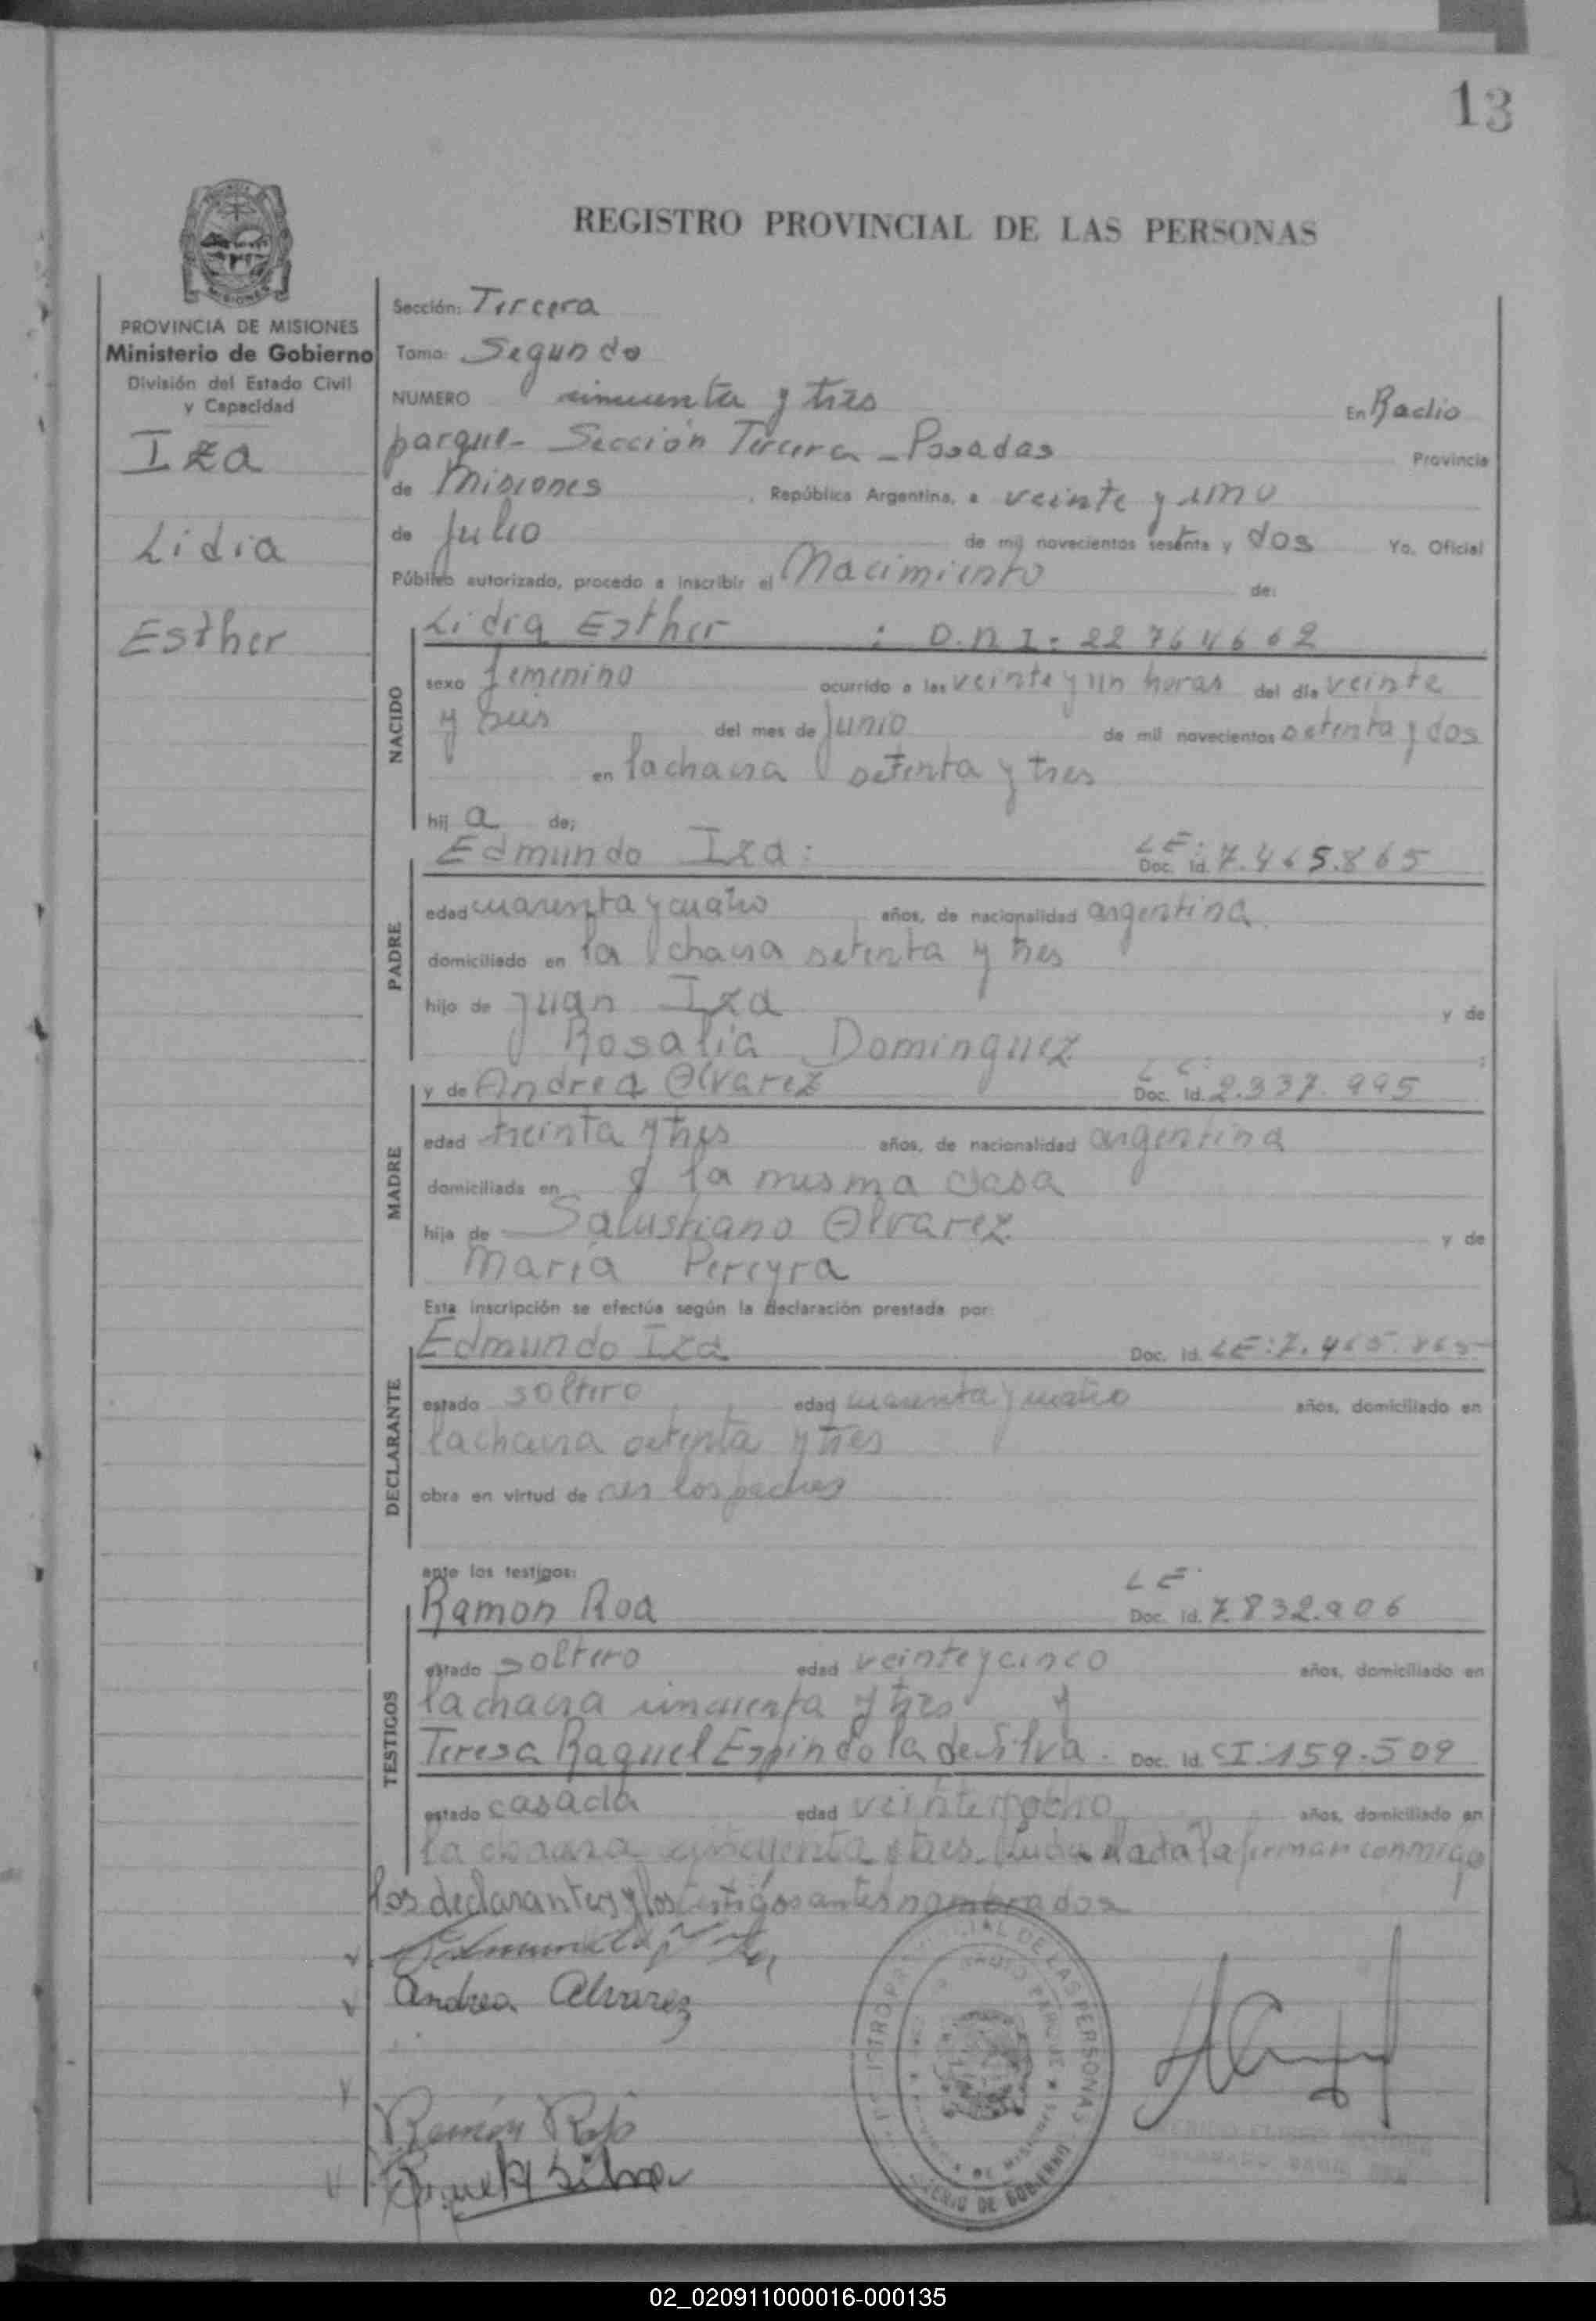 13
REGISTRO PROVINCIAL DE LAS PERSONAS
MISIONES
PROVINCIA DE MISIONES
Ministerio de Gobierno
División del Estado Civil
y Capacidad
Iza
Lidia
Esther
Sección: Tercera
Tomo: Segundo
NUMERO cincuenta y tres En Radio
parque - Sección Tercera - Posadas Provincia
de Misiones, República Argentina, a veinte y uno
de Julio de mil novecientos sesenta y dos Yo, Oficial
Público autorizado, procedo a inscribir el Nacimiento de:
NACIDO
Lidia Esther : D.N.I. 22 764 662
sexo femenino ocurrido a las veinte y un horas del día veinte
y seis del mes de Junio de mil novecientos setenta y dos
en la chacra setenta y tres
hij a de;
PADRE
Edmundo Iza: LE: Doc. Id. 7.465.865
edad cuarenta y cuatro años, de nacionalidad argentina.
domiciliado en la chacra setenta y tres
hijo de Juan Iza y de
Rosalia Dominguez
MADRE
y de Andrea Alvarez LC: Doc. Id. 2.337.995
edad treinta y tres años, de nacionalidad argentina
domiciliada en la misma casa
hija de Salustiano Alvarez y de
Maria Pereyra
Esta inscripción se efectúa según la declaración prestada por:
DECLARANTE
Edmundo Iza Doc. Id. LE: 7.465.865
estado soltero edad cuarenta y cuatro años, domiciliado en
la chacra setenta y tres
obra en virtud de ser los padres
ante los testigos:
TESTIGOS
Ramon Roa LE Doc. Id. 7.832.906
estado soltero edad veinte y cinco años, domiciliado en
la chacra cincuenta y tres y
Teresa Raquel Espindola de Silva. Doc. Id. CI: 159.509
estado casada edad veinte y ocho años, domiciliado en
la chacra cincuenta y tres. Leida el acta la firman conmigo
los declarantes y los testigos antes nombrados
Andrea Alvarez
Ramón
Silva
DE LAS PERSONAS
DE MISIONES
DE GOBIERNO
02_020911000016-000135